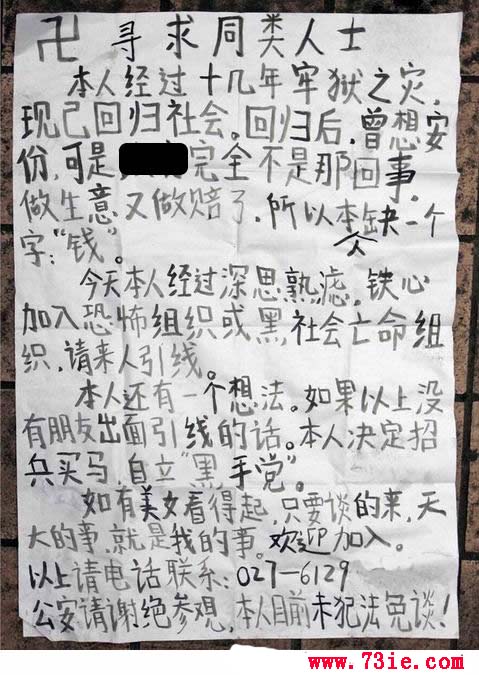 卐 寻求同类人士
本人经过十几年牢狱之灾,
现已回归社会。回归后,曾想安
份,可是 完全不是那回事。
做生意又做赔了,所以本人缺一个
字:“钱”。
今天本人经过深思熟滤,铁心
加入恐怖组织或黑,社会亡命组
织,请来人引线。
本人还有一个想法。如果以上没
有朋友出面引线的话。本人决定招
兵买马 自立“黑手党”。
如有美女看得起,只要谈的来,天
大的事,就是我的事。欢迎加入。
以上请电话联系:027-6129
公安请谢绝参观,本人目前未犯法免谈!
www.73ie.com